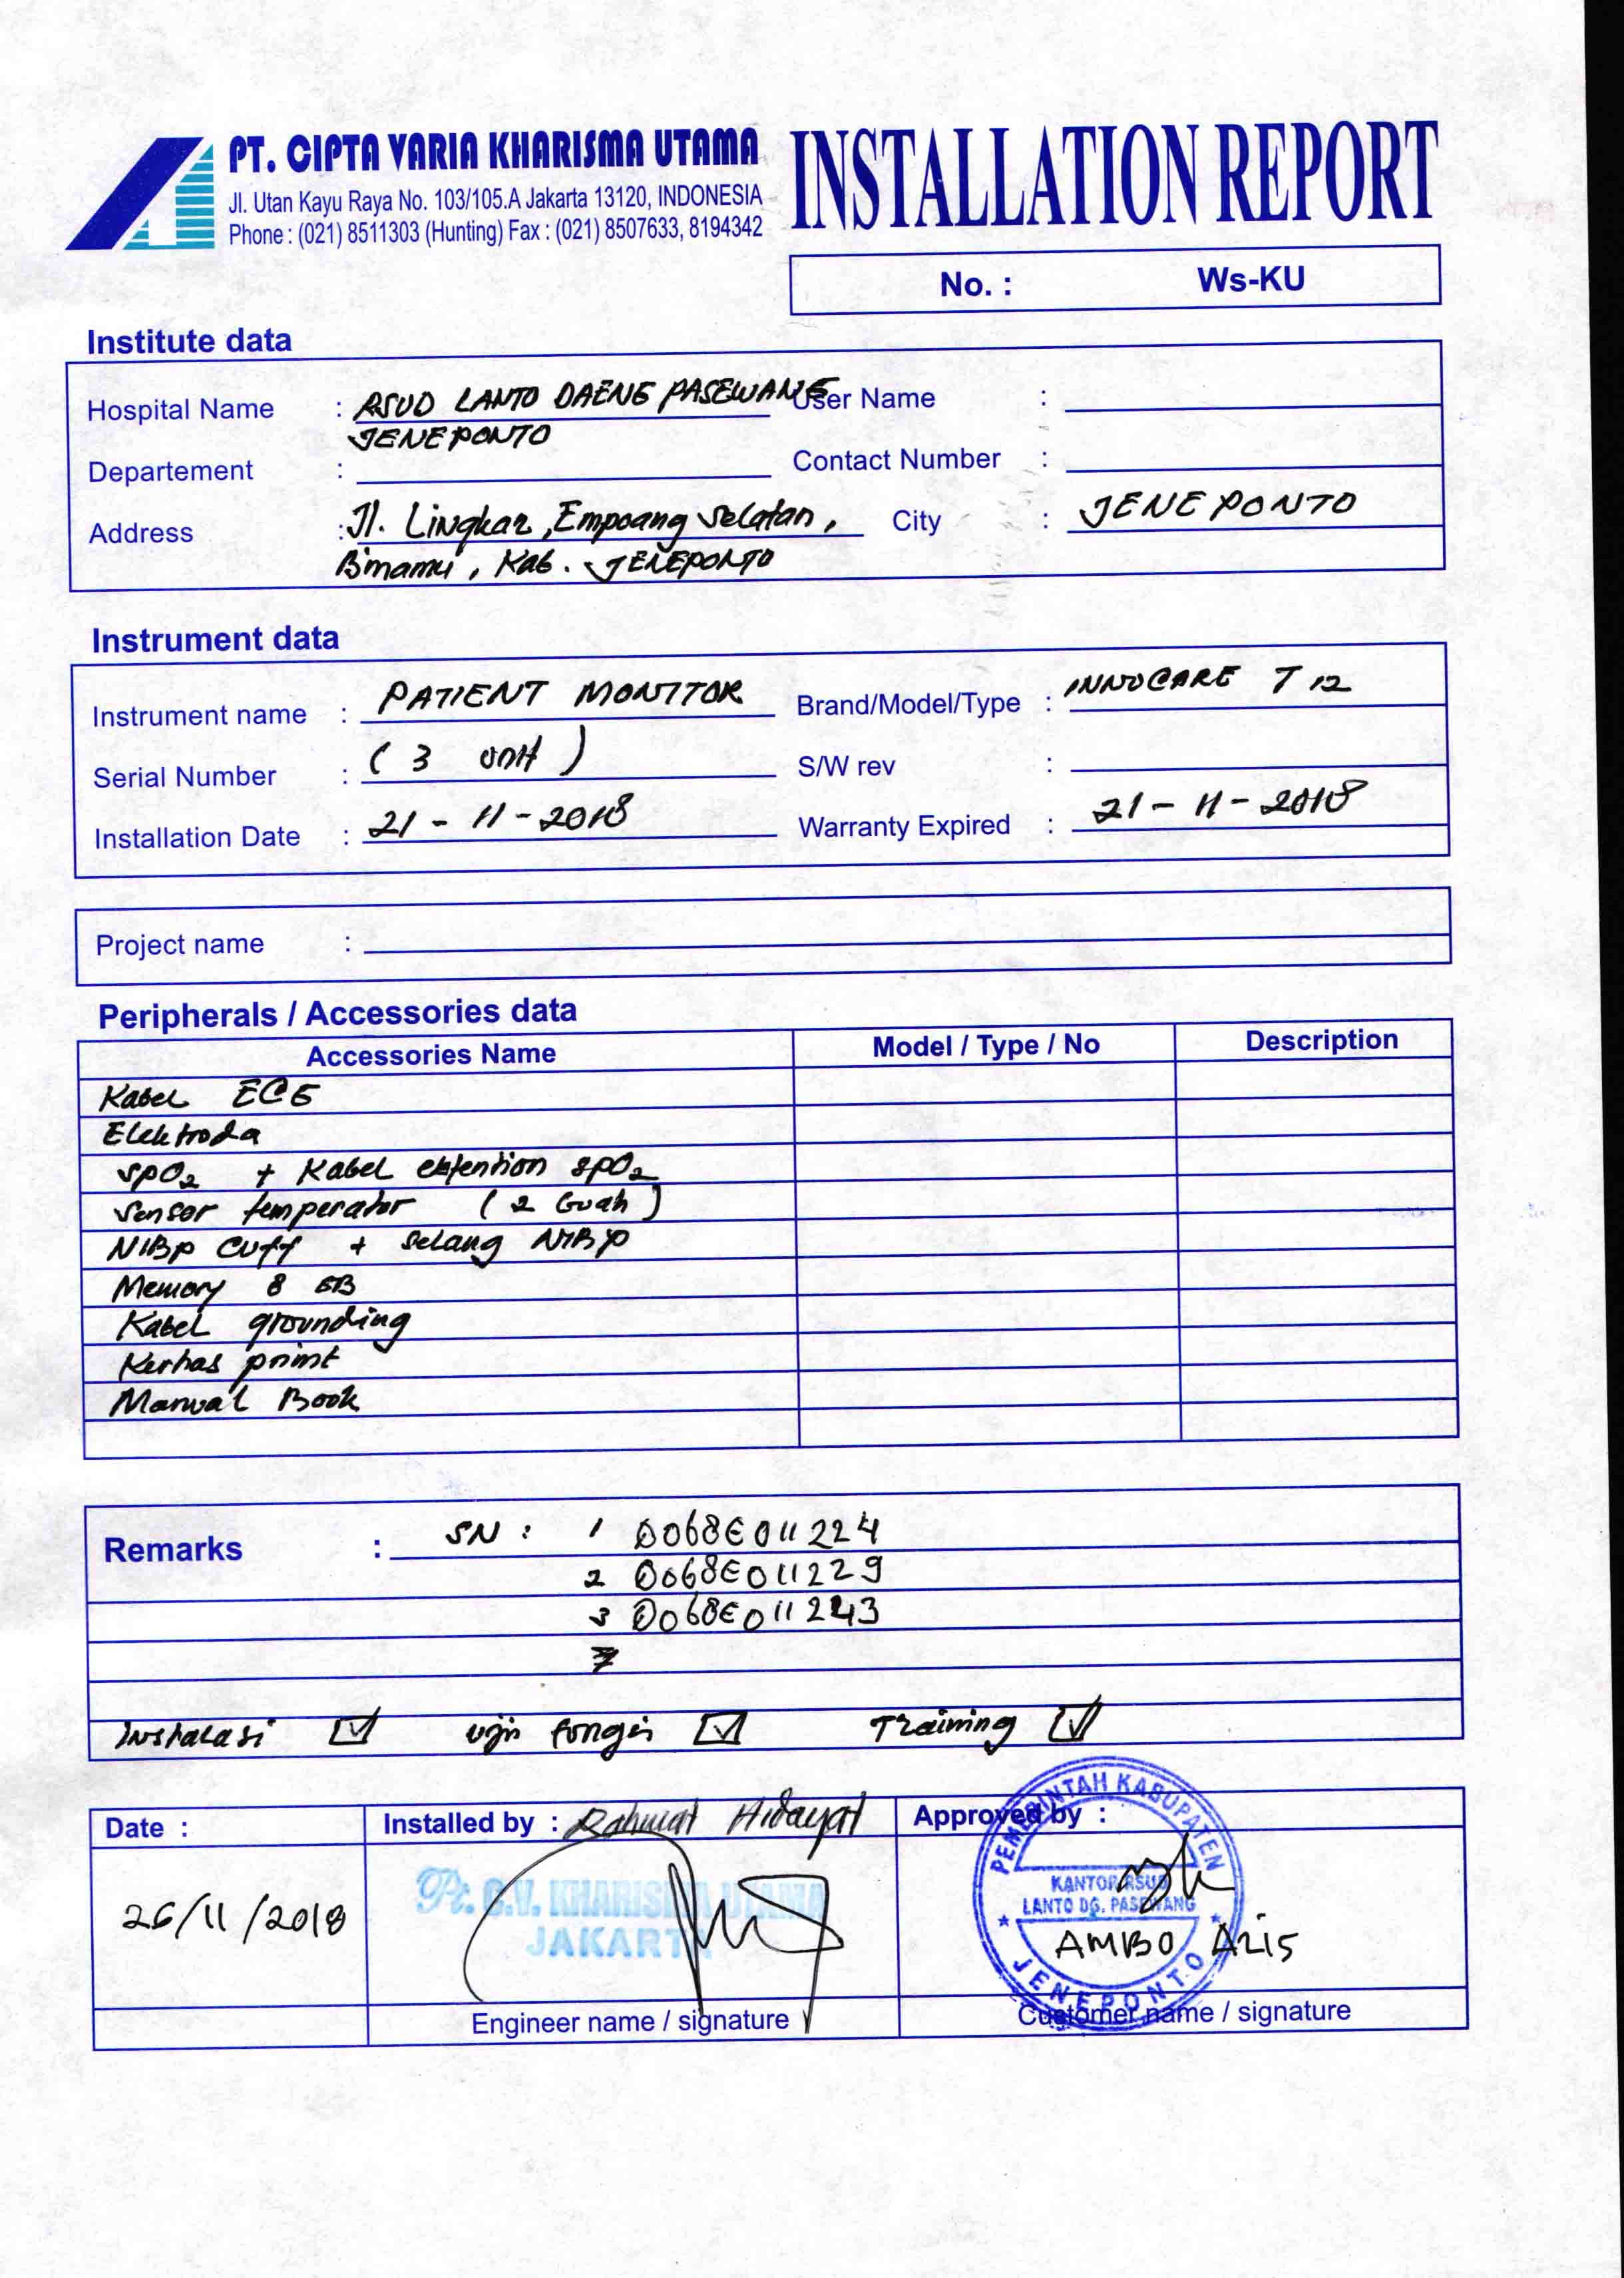 PT. CIPTA VARIA KHARISMA UTAMA
Jl. Utan Kayu Raya No. 103/105.A Jakarta 13120, INDONESIA
Phone : (021) 8511303 (Hunting) Fax : (021) 8507633, 8194342
INSTALLATION REPORT
No. : Ws-KU
Institute data
Hospital Name : RSUD LANTO DAENG PASEWANG User Name :
JENEPONTO
Departement : Contact Number :
Address : Jl. Lingkar, Empoang Selatan, City : JENEPONTO
Binamu, Kab. JENEPONTO
Instrument data
Instrument name : PATIENT MONITOR Brand/Model/Type : INNOCARE T 12
Serial Number : ( 3 unit ) S/W rev :
Installation Date : 21 - 11 - 2018 Warranty Expired : 21 - 11 - 2018
Project name :
Peripherals / Accessories data
Accessories Name Model / Type / No Description
Kabel ECG
Elektroda
SpO2 + Kabel extention SpO2
Sensor temperator ( 2 buah )
NIBP Cuff + Selang NIBP
Memory 8 GB
Kabel grounding
Kertas print
Manual Book
Remarks : SN : 1 0068E011224
2 0068E011229
3 0068E011243
Instalasi ☑ uji fungsi ☑ Training ☑
Date : Installed by : Rahmat Hidayat Approved by :
26/11/2018
Pt. C.V. KHARISMA UTAMA
JAKARTA
PEMERINTAH KABUPATEN
KANTOR RSUD
LANTO DG. PASEWANG
JENEPONTO
AMBO AZIS
Engineer name / signature Customer name / signature